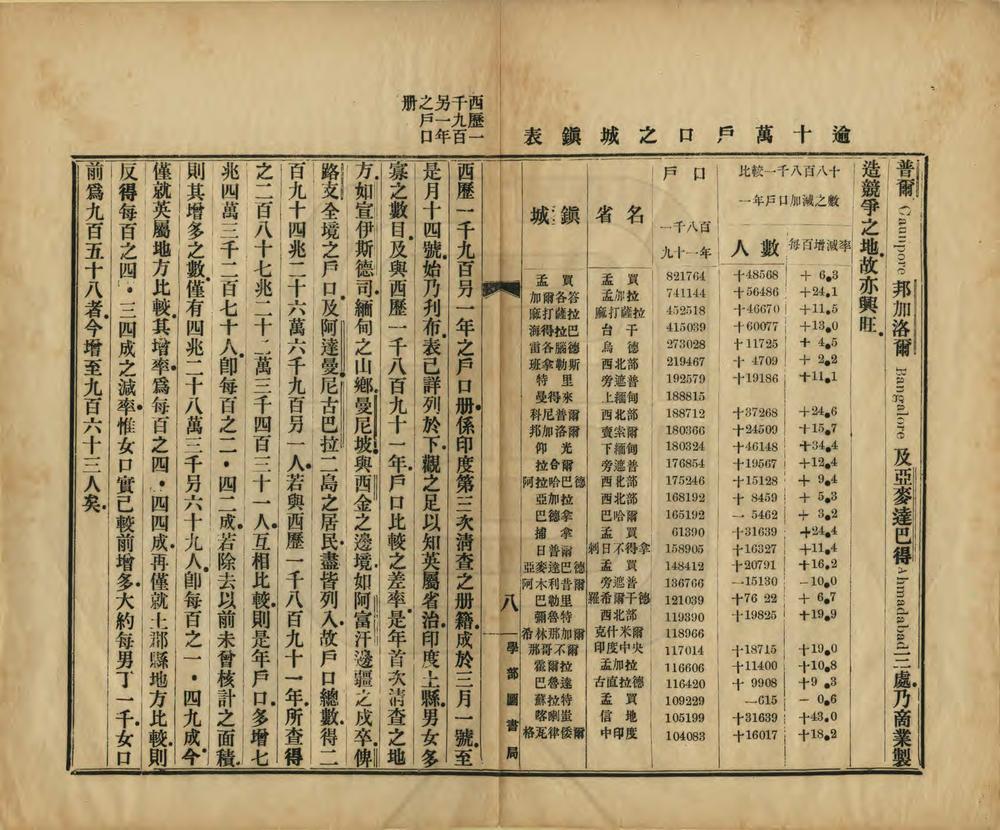 普爾 Caunpore 邦加洛爾 Bangalore 及亞麥達巴得 Ahmadabad 三處。乃商業製
造競爭之地。故亦興旺。
逾十萬戶口之城鎭表
比較一千八百八十一年戶口加減之數
每百增減率 人數 口戶 一千八百九十一年 名省 鎭城
孟買 孟買 821764 +48568 +6.3
加爾各答 孟加拉 741144 +56486 +24.1
麻打薩拉 麻打薩拉 452518 +46670 +11.5
海得拉巴 台干 415039 +60077 +13.0
雷各腦德 烏德 273028 +11725 +4.5
班拿勒斯 西北部 219467 +4709 +2.2
特里 旁遮普 192579 +19186 +11.1
曼得來 上緬甸 188815
科尼普爾 西北部 188712 +37268 +24.6
邦加洛爾 賣索爾 180366 +24509 +15.7
仰光 下緬甸 180324 +46148 +34.4
拉合爾 旁遮普 176854 +19567 +12.4
阿拉哈巴德 西北部 175246 +15128 +9.4
亞加拉 西北部 168192 +8459 +5.3
巴德拿 巴哈爾 165192 -5462 +3.2
捕拿 孟買 61390 +31639 +24.4
日普爾 剌日不得拿 158905 +16327 +11.4
亞麥達巴德 孟買 148412 +20791 +16.2
阿木利昔爾 旁遮普 136766 -15130 -10.0
巴勒里 羅希爾干德 121039 +76 22 +6.7
彌魯特 西北部 119390 +19825 +19.9
希林那加爾 克什米爾 118966
那哥不爾 印度中央 117014 +18715 +19.0
霍爾拉 孟加拉 116606 +11400 +10.8
巴魯達 古直拉德 116420 +9908 +9.3
蘇拉特 孟買 109229 -615 -0.6
喀喇蚩 信地 105199 +31639 +43.0
格瓦律倭爾 中印度 104083 +16017 +18.2
八
學部圖書局
西歷一千九百另一年之戶口册
西歷一千九百另一年之戶口册。係印度第三次清查之册籍。成於三月一號。至
是月十四號。始乃刊布。表已詳列於下。觀之足以知英屬省治。印度土縣。男女多
寡之數目。及與西歷一千八百九十一年。戶口比較之差率。是年首次清查之地
方。如宣伊斯德司。緬甸之山鄕。曼尼坡。與西金之邊境。如阿富汗邊疆之戍卒。俾
路支全境之戶口。及阿達曼尼古巴拉二島之居民。盡皆列入。故戶口總數。得二
百九十四兆二十六萬六千九百另一人。若與西歷一千八百九十一年。所查得
之二百八十七兆二十二萬三千四百三十一人。互相比較。則是年戶口。多增七
兆四萬三千二百七十人。卽每百之二．四二成。若除去以前未曾核計之面積。
則其增多之數。僅有四兆二十八萬三千另六十九人。卽每百之一．四九成。今
僅就英屬地方比較。其增率。爲每百之四．四四成。再僅就土郡縣地方比較。則
反得每百之四．三四成之減率。惟女口實已較前增多。大約每男丁一千。女口
前爲九百五十八者。今增至九百六十三人矣。